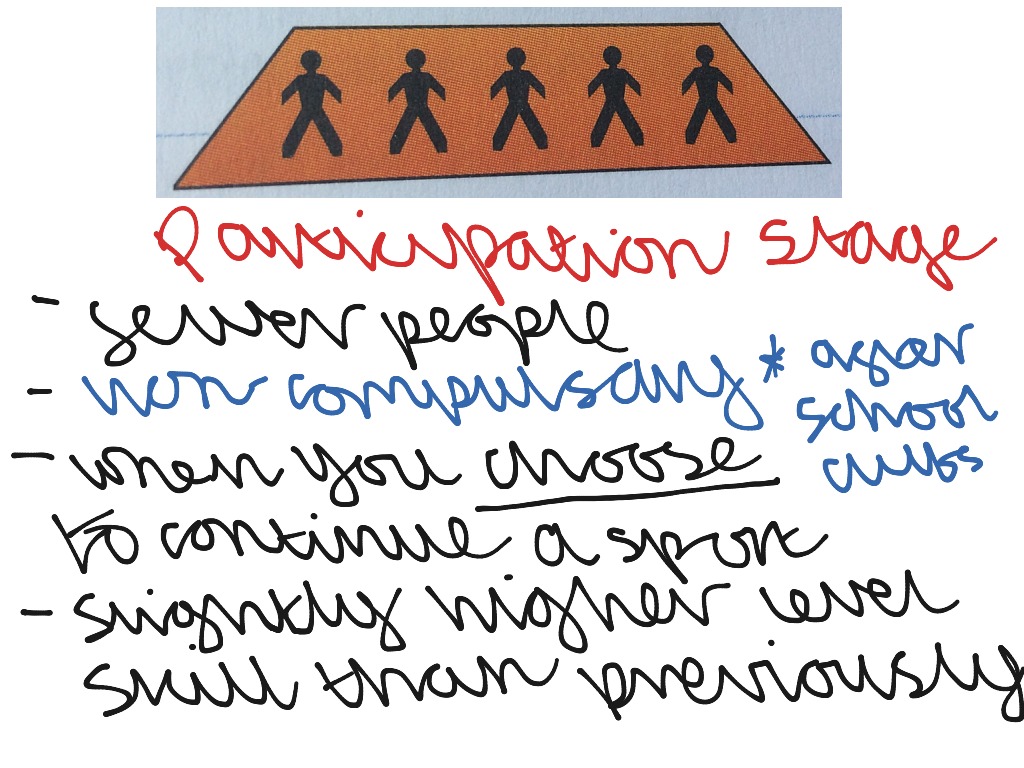 Participation stage
- fewer people
- non compulsory * after
school
clubs
- when you choose
to continue a sport
- slightly higher level
skill than previously